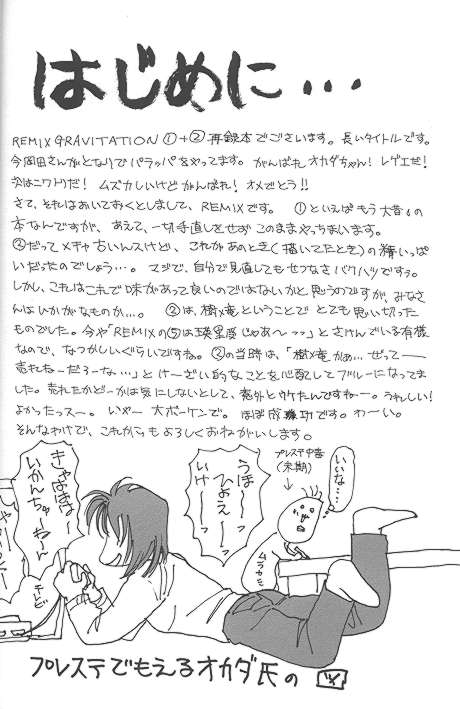 はじめに…
REMIX GRAVITATION ①+② 再録本でございます。長いタイトルです。
今岡田さんがとなりでパラッパをやってます。がんばれオカダちゃん！レゲエだ！
次はニワトリだ！ムズカしいけどがんばれ！オメでとう!!
さて、それはあいておくとしまして、REMIXです。①といえばもう大昔の
本なんですが、あえて、一切手直しをせず このままやっちまいます。
②だって メチャ古いんスけど、これがあのとき(描いてたとき)の精いっぱ
いだったのでしょう…。マジで、自分で見直してもせつなさバクハツですっ。
しかし、これはこれで味があって良いのではないかと思うのですが、みなさ
んはいかがなものか…。②は、樹×竜ということで とても思い切った
ものでした。今や「REMIXの⑤は瑛里
じゃあ〜っっ」とさけんでいる有様
なので、なつかしいぐらいですね。②の当時は、「樹×竜かぁ…ぜってー
売れねーだろーな…」とけーざい的なことを心配してブルーになってま
した。売れたかどーかは気にしないとして、意外とウケたんですねー。うれしい！
よかったっスー。いやー 大ボーケンで。ほぼ成功です。わーい。
そんなわけで、これからもよろしくおねがいします。
きゃあまは
いかんちゃーん
テレビ
うほ〜っ
ひょえ〜っ
いけ〜っ
プレステ中毒
(末期)
いいな…
ムラカミ
プレステでもえるオカダ氏の図